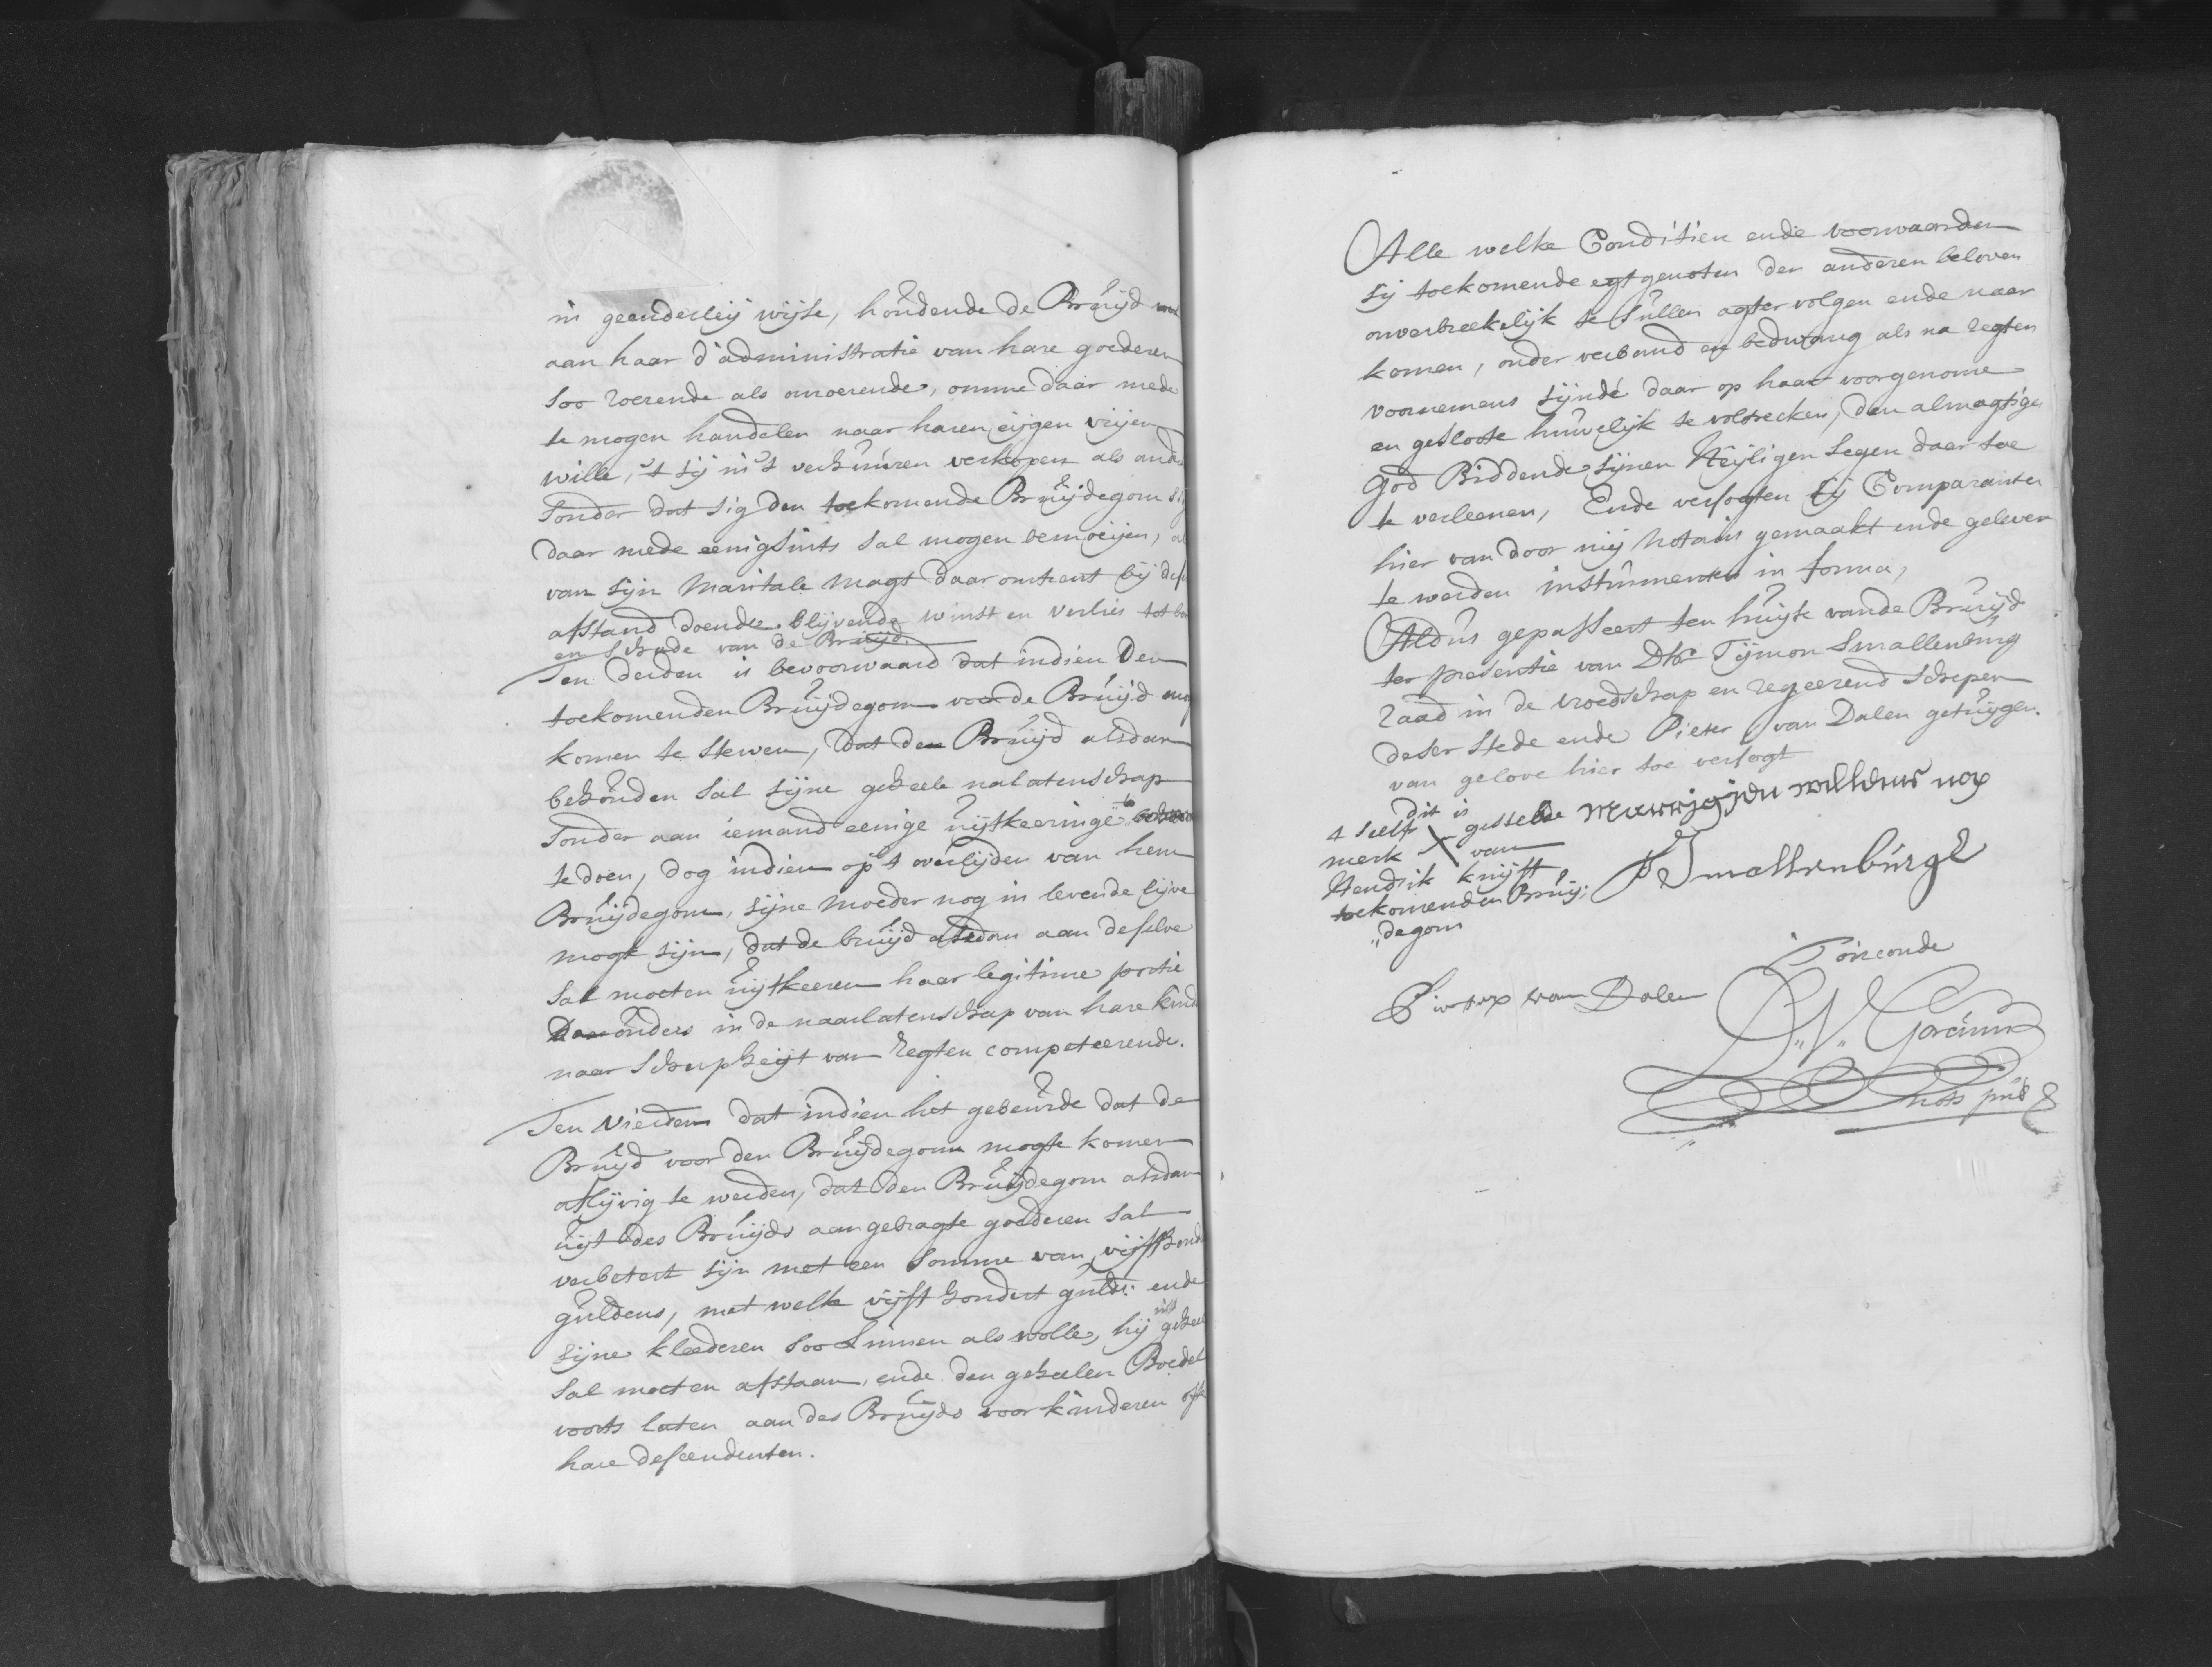 in geenderleij wijse, houdende de Bruijd
aan haar d'administratie van hare goederen
soo roerende als onroerende, omme daar mede
te mogen handelen naar haren eijgen vrijen
wille, 't sij in 't verhuuren verkopen als
sonder dat sig den toekomende Bruijdegom
daar mede eenigsints sal mogen bemoeijen,
van sijn Maritale Magt daar omtrent bij
afstand doende. blijvende winst en verlies tot
en schade van de Bruijd.
Ten derden is bevoorwaard dat indien den
toekomenden Bruijdegom voor de Bruijd
komen te sterven, dat den Bruijd alsdan
behouden sal sijne geheele nalatenschap
sonder aan iemand eenige uijtkeeringe
te doen, dog indien op 't overlijden van hem
Bruijdegom, sijne Moeder nog in levende lijve
mogt sijn, dat de bruijd alsdan aan deselve
sal moeten uijtkeeren haar legitime portie
ouders in de naarlatenschap van hare
naar scherpheijt van regten competeerende.
Ten Vierden dat indien het gebeurde dat de
Bruijd voor den Bruijdegom mogte komen
aflijvig te werden, dat den Bruijdegom alsdan
uijt des Bruijds aangebragte goederen sal
verbetert sijn met een somme van vijff
guldens, met welke vijft hondert guld: ende
sijne kleederen soo Linnen als wolle, hij
sal moeten afstaan, ende den geheelen Boedel
voorts laten aan des Bruijds voor kinderen
hare descendenten.
Alle welke Conditien ende voorwaarden
sij toekomende egtgenoten den anderen beloven
onverbreekelijk te sullen agtervolgen ende naar
komen, onder verband en bedwang als na regten
voornemens sijnde daar op haar voorgenome
en geslote huwelijk te voltrecken, den almagtigen
God Biddende sijnen Heijligen Segen daar toe
te verleenen, Ende versogten sij Comparanten
hier van door mij Notaris gemaakt ende gelevert
te werden instrumenten in forma,
Aldus gepasseert ten huijse vande Bruijd
ter presentie van Dhr. Tijmon Smallenburg
raad in de vroedschap en regeerend Schepen
deser Stede ende Pieter van Dalen getuijgen.
van gelove hier toe versogt
dit is
't selfs gestelde
merk X van
Hendrik knijft
toekomenden Bruij:
„degom
willems
T Smallenburgh
Pieter van Dalen
T'oirconde
nots pub